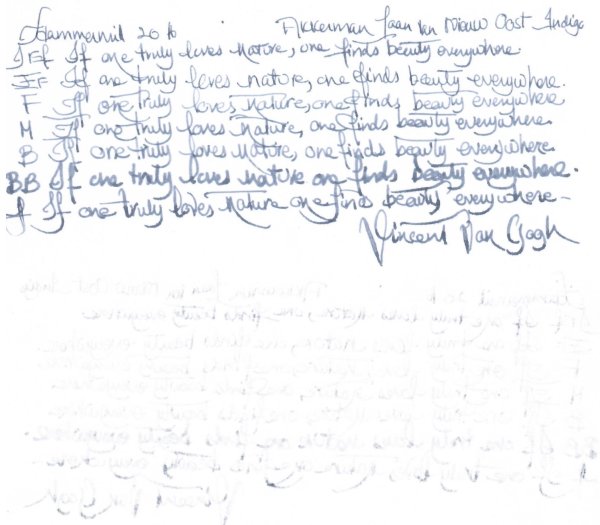 Hammermill 20 lb Akkerman Laan Van Nieuw Oost Indigo
IEF If one truly loves nature, one finds beauty everywhere.
EF If one truly loves nature, one finds beauty everywhere.
F If one truly loves nature, one finds beauty everywhere
M If one truly loves nature, one finds beauty everywhere.
B If one truly loves nature, one finds beauty everywhere.
BB If one truly loves nature one finds beauty everywhere.
f If one truly loves nature one finds beauty everywhere-
Vincent Van Gogh